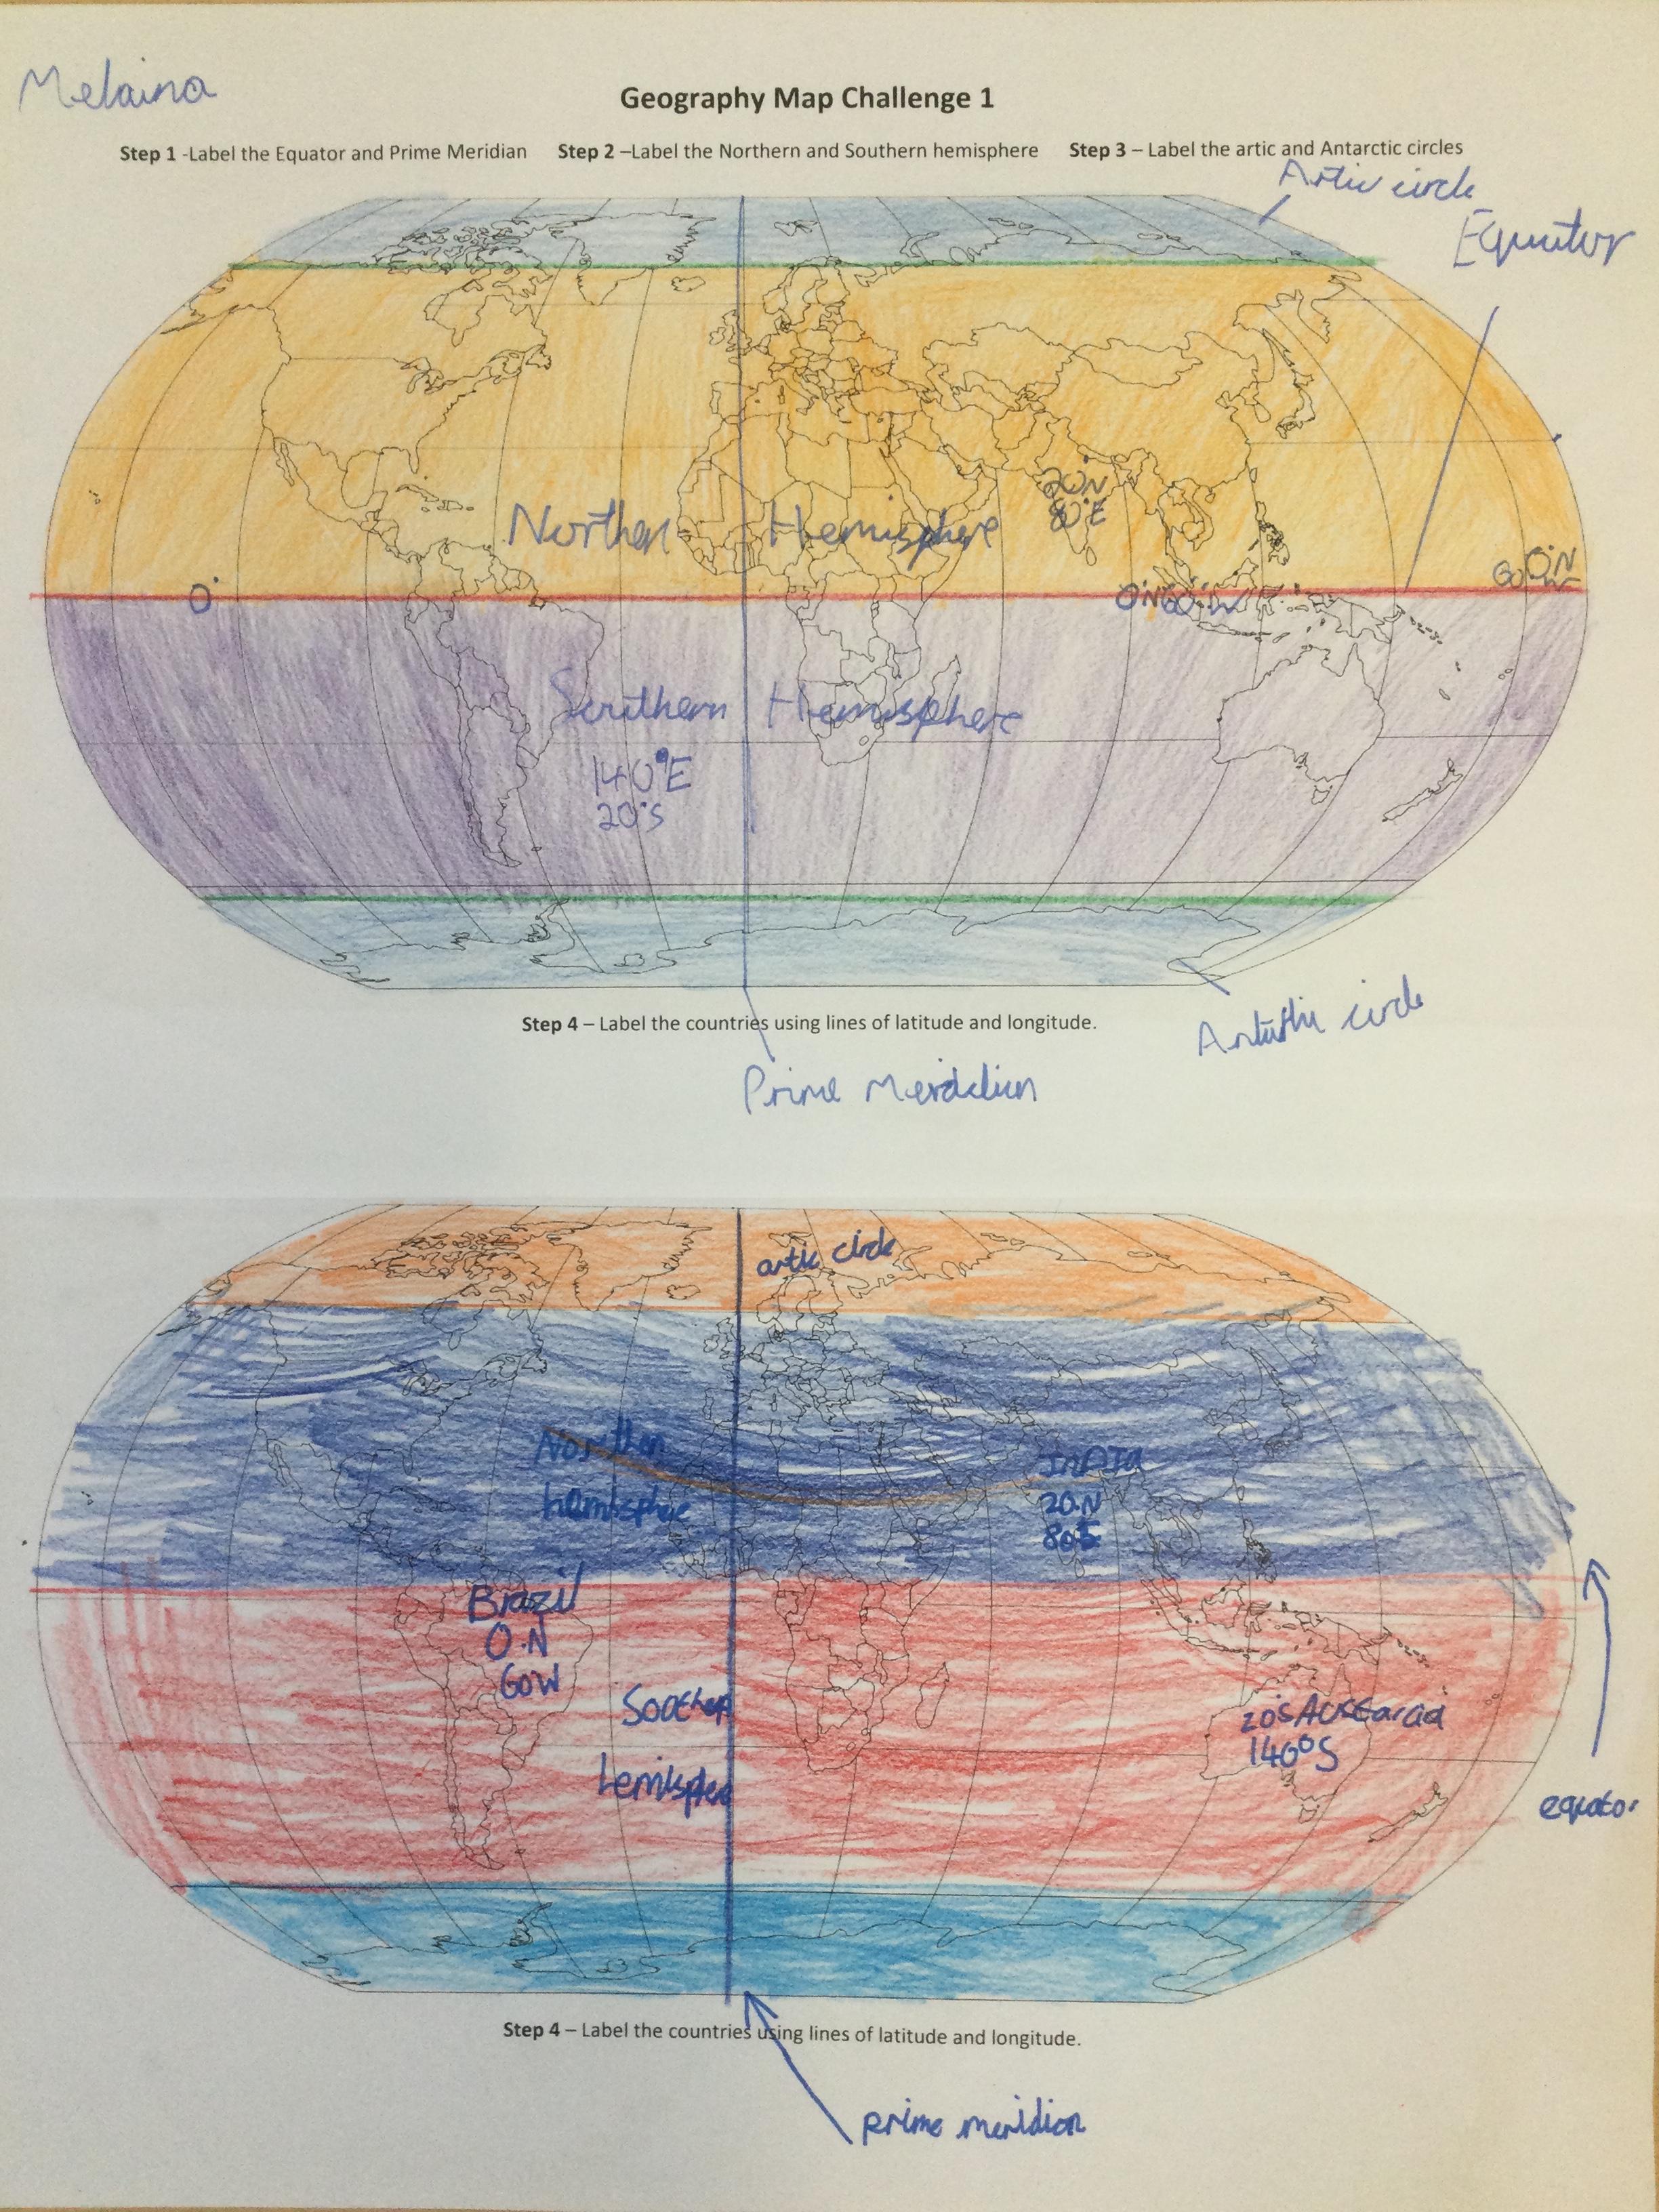 Melaina
Geography Map Challenge 1
Step 1 -Label the Equator and Prime Meridian Step 2 –Label the Northern and Southern hemisphere Step 3 – Label the artic and Antarctic circles
Artic circle
Equator
20°N
80°E
Northern Hemisphere
0° 0°N 60°W 60 0°N
W
Southern Hemisphere
140°E
20°S
Step 4 – Label the countries using lines of latitude and longitude.
circle
Prime
artic circle
Northen
hemisphre
INDIA
20.N
80E
Brazil
0.N
60W
Soothen
hemisphere
20°S
140°S
equator
Step 4 – Label the countries using lines of latitude and longitude.
prime meridion